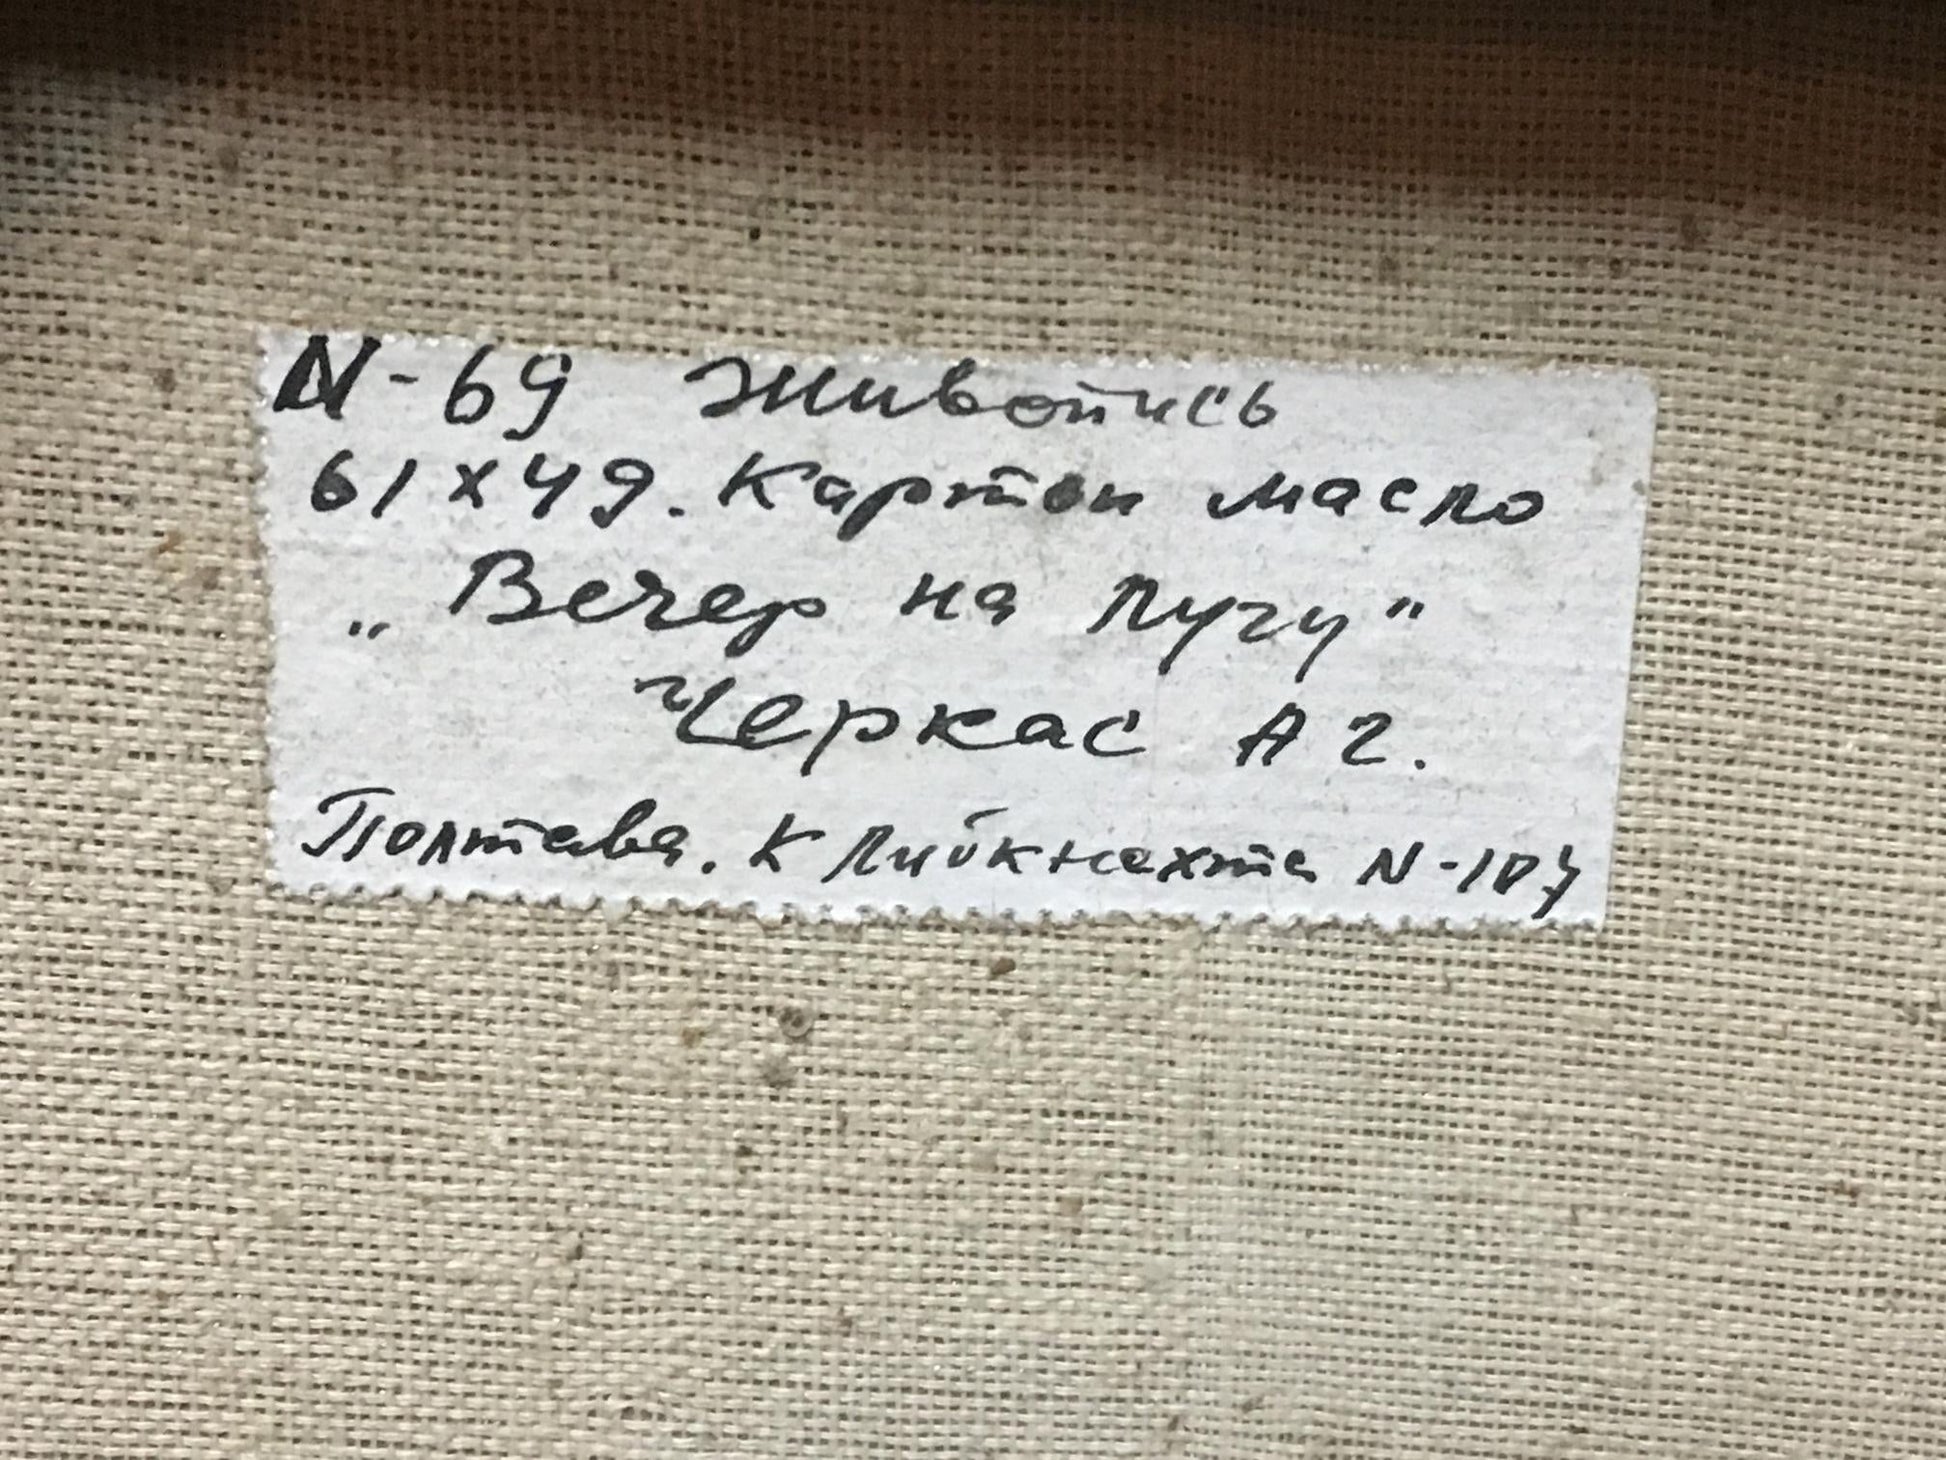 N-69 живопись
61x49. Картон масло
„Вечер на лугу"
Черкас А г.
Полтава. К Либкнехта N-107